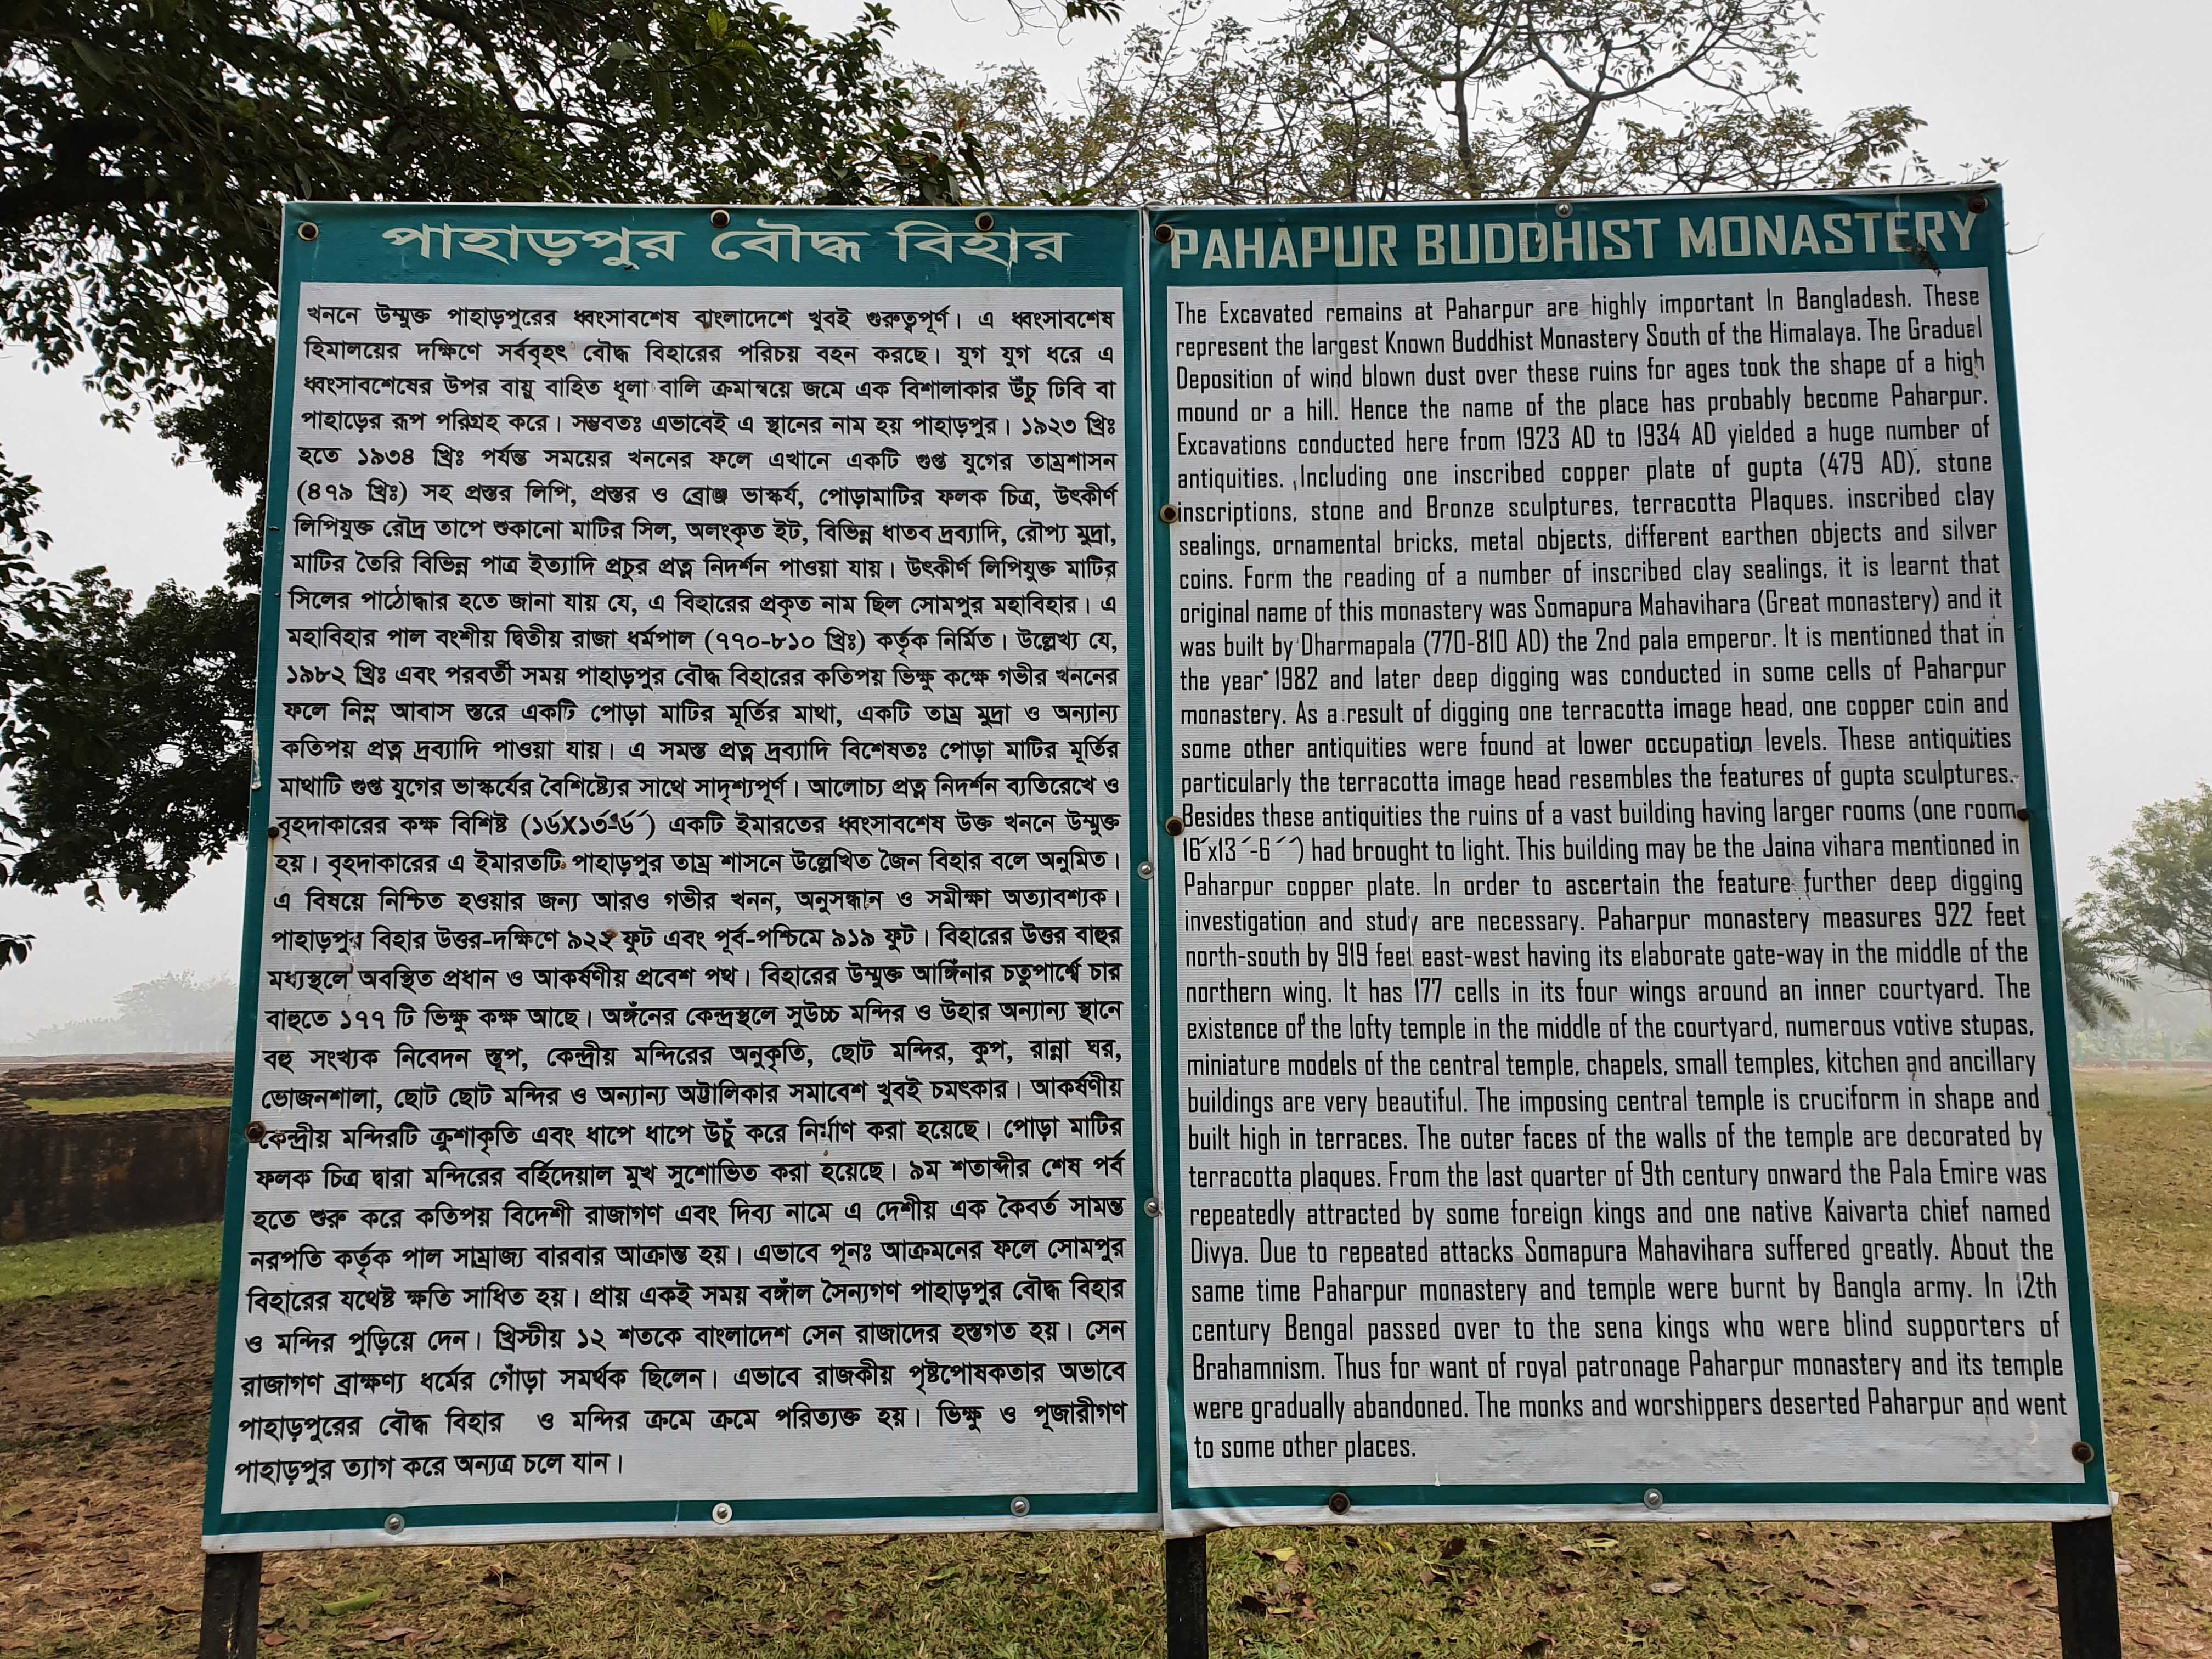 পাহাড়পুর বৌদ্ধ বিহার
খননে উন্মুক্ত পাহাড়পুরের ধ্বংসাবশেষ বাংলাদেশে খুবই গুরুত্বপূর্ণ। এ ধ্বংসাবশেষ
হিমালয়ের দক্ষিণে সর্ববৃহৎ বৌদ্ধ বিহারের পরিচয় বহন করছে। যুগ যুগ ধরে এ
ধ্বংসাবশেষের উপর বায়ু বাহিত ধূলা বালি ক্রমান্বয়ে জমে এক বিশালাকার উঁচু ঢিবি বা
পাহাড়ের রূপ পরিগ্রহ করে। সম্ভবতঃ এভাবেই এ স্থানের নাম হয় পাহাড়পুর। ১৯২৩ খ্রিঃ
হতে ১৯৩৪ খ্রিঃ পর্যন্ত সময়ের খননের ফলে এখানে একটি গুপ্ত যুগের তাম্রশাসন
(৪৭৯ খ্রিঃ) সহ প্রস্তর লিপি, প্রস্তর ও ব্রোঞ্জ ভাস্কর্য, পোড়ামাটির ফলক চিত্র, উৎকীর্ণ
লিপিযুক্ত রৌদ্র তাপে শুকানো মাটির সিল, অলংকৃত ইট, বিভিন্ন ধাতব দ্রব্যাদি, রৌপ্য মুদ্রা,
মাটির তৈরি বিভিন্ন পাত্র ইত্যাদি প্রচুর প্রত্ন নিদর্শন পাওয়া যায়। উৎকীর্ণ লিপিযুক্ত মাটির
সিলের পাঠোদ্ধার হতে জানা যায় যে, এ বিহারের প্রকৃত নাম ছিল সোমপুর মহাবিহার। এ
মহাবিহার পাল বংশীয় দ্বিতীয় রাজা ধর্মপাল (৭৭০-৮১০ খ্রিঃ) কর্তৃক নির্মিত। উল্লেখ্য যে,
১৯৮২ খ্রিঃ এবং পরবর্তী সময় পাহাড়পুর বৌদ্ধ বিহারের কতিপয় ভিক্ষু কক্ষে গভীর খননের
ফলে নিম্ন আবাস স্তরে একটি পোড়া মাটির মূর্তির মাথা, একটি তাম্র মুদ্রা ও অন্যান্য
কতিপয় প্রত্ন দ্রব্যাদি পাওয়া যায়। এ সমস্ত প্রত্ন দ্রব্যাদি বিশেষতঃ পোড়া মাটির মূর্তির
মাথাটি গুপ্ত যুগের ভাস্কর্যের বৈশিষ্ট্যের সাথে সাদৃশ্যপূর্ণ। আলোচ্য প্রত্ন নিদর্শন ব্যতিরেখে ও
বৃহদাকারের কক্ষ বিশিষ্ট (১৬´X১৩´-৬´´) একটি ইমারতের ধ্বংসাবশেষ উক্ত খননে উন্মুক্ত
হয়। বৃহদাকারের এ ইমারতটি পাহাড়পুর তাম্র শাসনে উল্লেখিত জৈন বিহার বলে অনুমিত।
এ বিষয়ে নিশ্চিত হওয়ার জন্য আরও গভীর খনন, অনুসন্ধান ও সমীক্ষা অত্যাবশ্যক।
পাহাড়পুর বিহার উত্তর-দক্ষিণে ৯২২ ফুট এবং পূর্ব-পশ্চিমে ৯১৯ ফুট। বিহারের উত্তর বাহুর
মধ্যস্থলে অবস্থিত প্রধান ও আকর্ষণীয় প্রবেশ পথ। বিহারের উন্মুক্ত আঙ্গিনার চতুপার্শ্বে চার
বাহুতে ১৭৭ টি ভিক্ষু কক্ষ আছে। অঙ্গনের কেন্দ্রস্থলে সুউচ্চ মন্দির ও উহার অন্যান্য স্থানে
বহু সংখ্যক নিবেদন স্তূপ, কেন্দ্রীয় মন্দিরের অনুকৃতি, ছোট মন্দির, কুপ, রান্না ঘর,
ভোজনশালা, ছোট ছোট মন্দির ও অন্যান্য অট্টালিকার সমাবেশ খুবই চমৎকার। আকর্ষণীয়
কেন্দ্রীয় মন্দিরটি ক্রুশাকৃতি এবং ধাপে ধাপে উচুঁ করে নির্মাণ করা হয়েছে। পোড়া মাটির
ফলক চিত্র দ্বারা মন্দিরের বর্হিদেয়াল মুখ সুশোভিত করা হয়েছে। ৯ম শতাব্দীর শেষ পর্ব
হতে শুরু করে কতিপয় বিদেশী রাজাগণ এবং দিব্য নামে এ দেশীয় এক কৈবর্ত সামন্ত
নরপতি কর্তৃক পাল সাম্রাজ্য বারবার আক্রান্ত হয়। এভাবে পূনঃ আক্রমনের ফলে সোমপুর
বিহারের যথেষ্ট ক্ষতি সাধিত হয়। প্রায় একই সময় বঙ্গাঁল সৈন্যগণ পাহাড়পুর বৌদ্ধ বিহার
ও মন্দির পুড়িয়ে দেন। খ্রিস্টীয় ১২ শতকে বাংলাদেশ সেন রাজাদের হস্তগত হয়। সেন
রাজাগণ ব্রাক্ষণ্য ধর্মের গোঁড়া সমর্থক ছিলেন। এভাবে রাজকীয় পৃষ্টপোষকতার অভাবে
পাহাড়পুরের বৌদ্ধ বিহার ও মন্দির ক্রমে ক্রমে পরিত্যক্ত হয়। ভিক্ষু ও পূজারীগণ
পাহাড়পুর ত্যাগ করে অন্যত্র চলে যান।
PAHAPUR BUDDHIST MONASTERY
The Excavated remains at Paharpur are highly important In Bangladesh. These
represent the largest Known Buddhist Monastery South of the Himalaya. The Gradual
Deposition of wind blown dust over these ruins for ages took the shape of a high
mound or a hill. Hence the name of the place has probably become Paharpur.
Excavations conducted here from 1923 AD to 1934 AD yielded a huge number of
antiquities. Including one inscribed copper plate of gupta (479 AD), stone
inscriptions, stone and Bronze sculptures, terracotta Plaques. inscribed clay
sealings, ornamental bricks, metal objects, different earthen objects and silver
coins. Form the reading of a number of inscribed clay sealings, it is learnt that
original name of this monastery was Somapura Mahavihara (Great monastery) and it
was built by Dharmapala (770-810 AD) the 2nd pala emperor. It is mentioned that in
the year 1982 and later deep digging was conducted in some cells of Paharpur
monastery. As a result of digging one terracotta image head, one copper coin and
some other antiquities were found at lower occupation levels. These antiquities
particularly the terracotta image head resembles the features of gupta sculptures.
Besides these antiquities the ruins of a vast building having larger rooms (one room
16´x13´-6´´) had brought to light. This building may be the Jaina vihara mentioned in
Paharpur copper plate. In order to ascertain the feature further deep digging
investigation and study are necessary. Paharpur monastery measures 922 feet
north-south by 919 feet east-west having its elaborate gate-way in the middle of the
northern wing. It has 177 cells in its four wings around an inner courtyard. The
existence of the lofty temple in the middle of the courtyard, numerous votive stupas,
miniature models of the central temple, chapels, small temples, kitchen and ancillary
buildings are very beautiful. The imposing central temple is cruciform in shape and
built high in terraces. The outer faces of the walls of the temple are decorated by
terracotta plaques. From the last quarter of 9th century onward the Pala Emire was
repeatedly attracted by some foreign kings and one native Kaivarta chief named
Divya. Due to repeated attacks Somapura Mahavihara suffered greatly. About the
same time Paharpur monastery and temple were burnt by Bangla army. In 12th
century Bengal passed over to the sena kings who were blind supporters of
Brahamnism. Thus for want of royal patronage Paharpur monastery and its temple
were gradually abandoned. The monks and worshippers deserted Paharpur and went
to some other places.